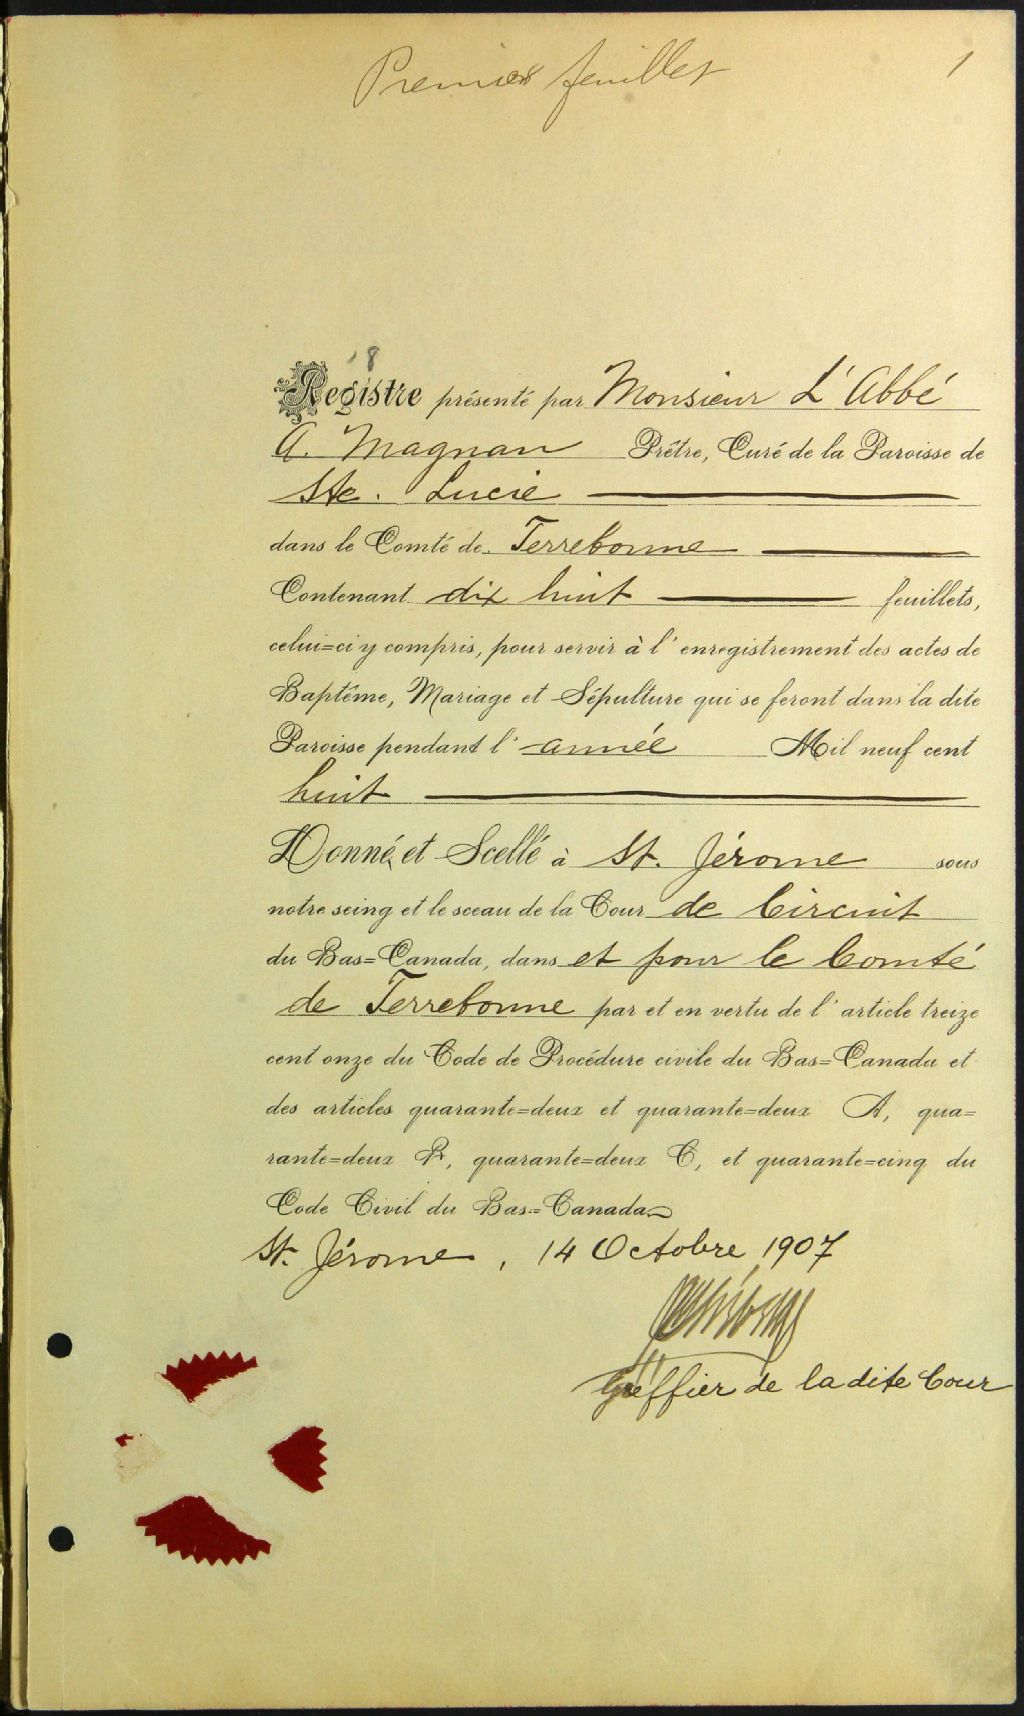 Premier feuillet
1
18
Registre présenté par Monsieur L'Abbé
A. Magnan Prêtre, Curé de la Paroisse de
Ste. Lucie
dans le Comté de Terrebonne
Contenant dix huit feuillets,
celui=ci y compris, pour servir à l'enregistrement des actes de
Baptême, Mariage et Sépulture qui se feront dans la dite
Paroisse pendant l'année Mil neuf cent
huit
Donné, et Scellé à St. Jérome sous
notre seing et le sceau de la Cour de Circuit
du Bas=Canada, dans et pour le Comté
de Terrebonne par et en vertu de l'article treize
cent onze du Code de Procédure civile du Bas=Canada et
des articles quarante=deux et quarante=deux A, qua=
rante=deux B, quarante=deux C, et quarante=cinq du
Code Civil du Bas=Canada
St. Jérome, 14 Octobre 1907
Greffier de la dite Cour